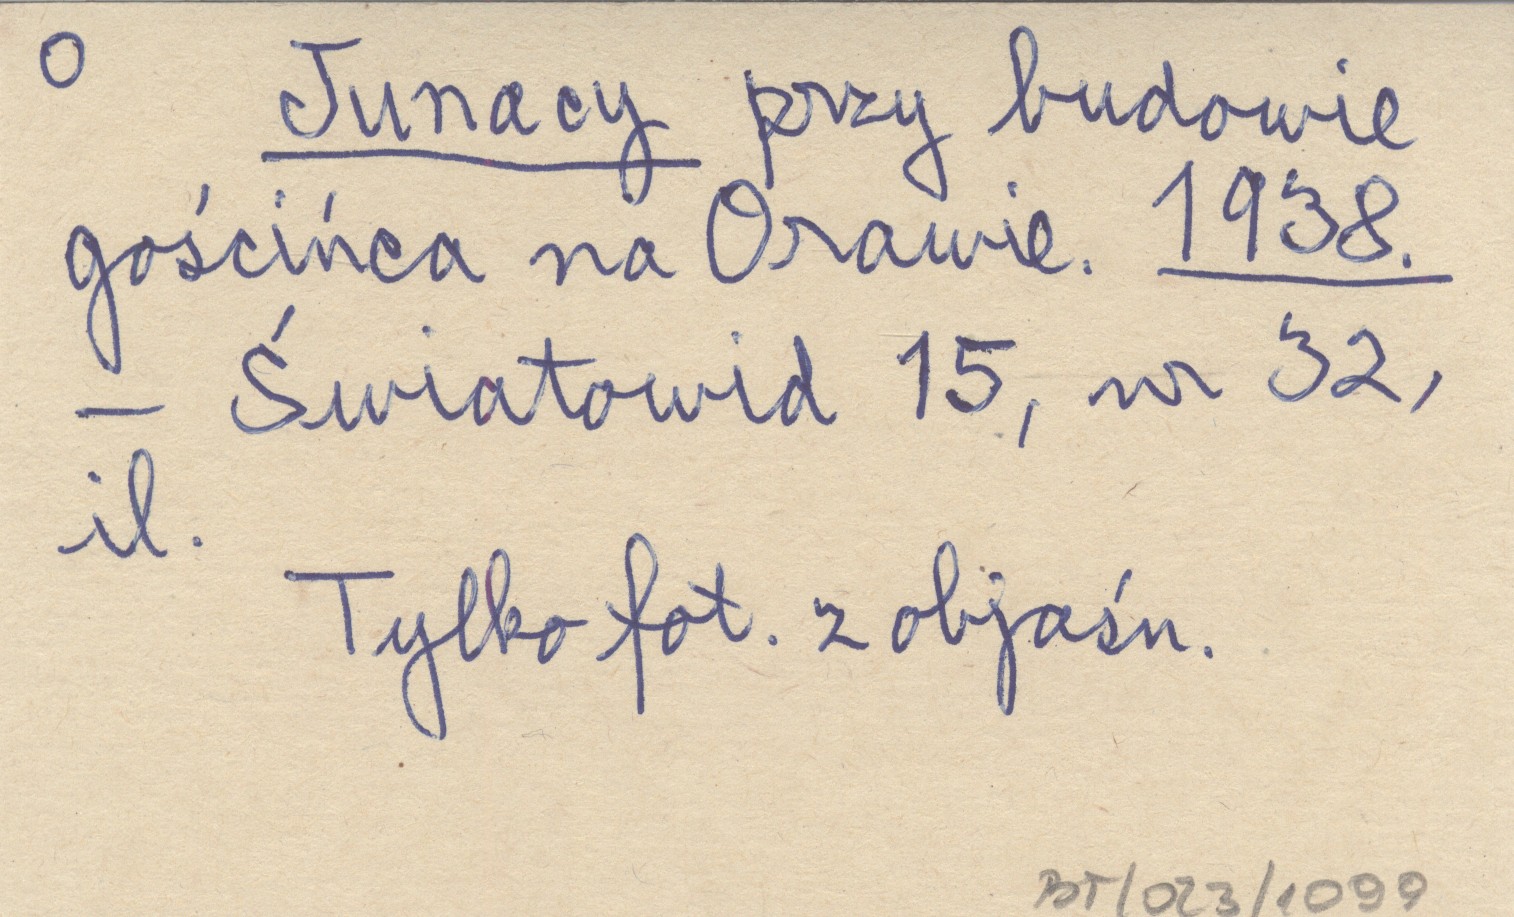 O
Junacy przy budowie
gościńca na Orawie. 1938.
— Światowid 15, nr 32,
il.
Tylko fot. z objaśn.
BT/023/1099